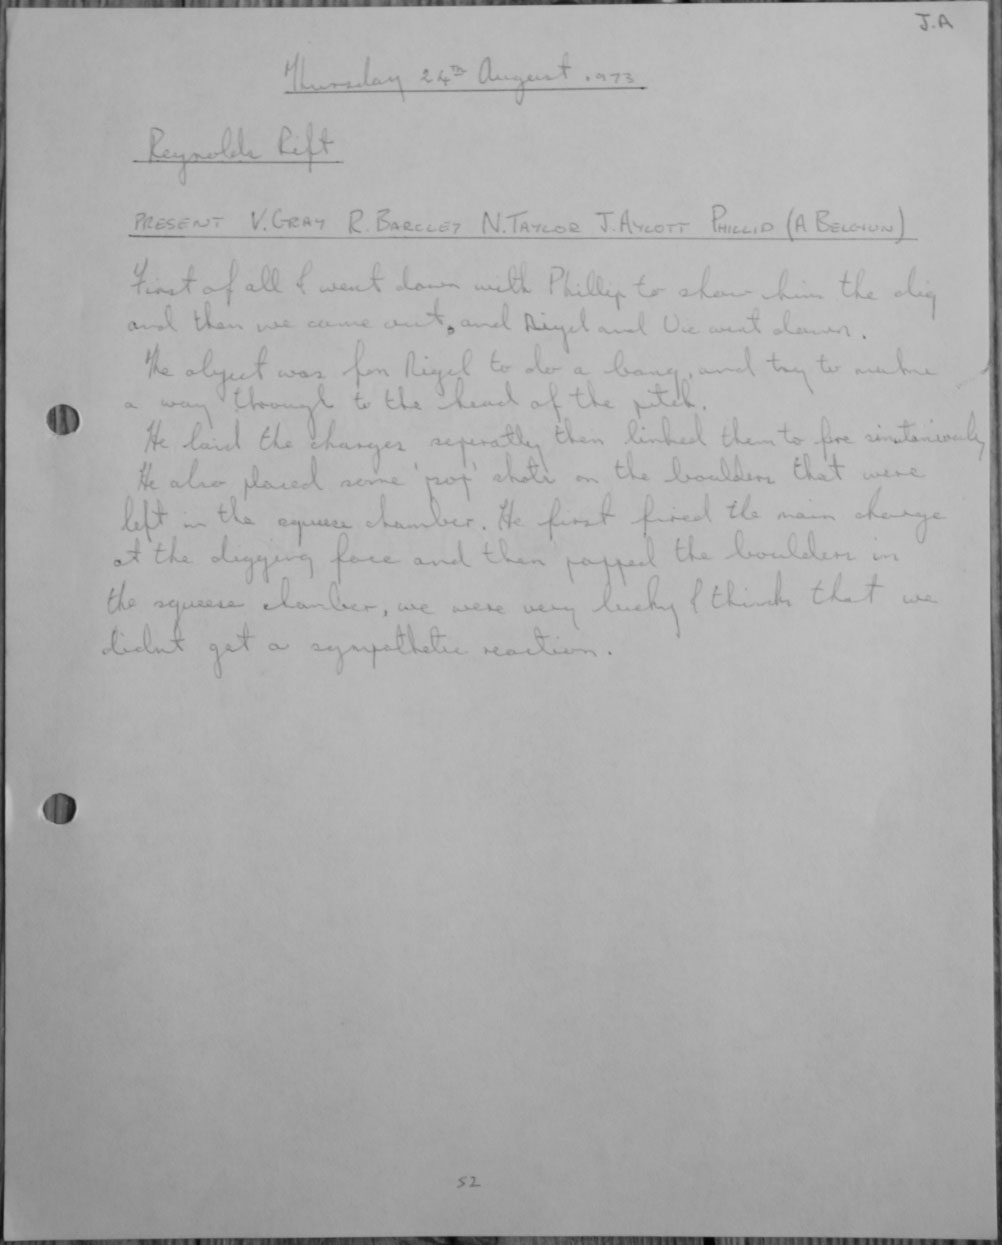 J.A
Thursday 24TH August 1973
Reynolds Rift
PRESENT V. GRAY R. BARCLEY N. TAYLOR J. AYCOTT PHILLIP (A BELGIUN)
First of all I went down with Phillip to show him the dig
and then we came out, and Nigel and Vic went down.
The object was for Nigel to do a bang, and try to make
a way through to the head of the pitch.
He laid the charges seperatly then linked them to fire
He also placed some 'pop' shots on the boulders that were
left in the squeese chamber. He first fired the main charge
at the digging face and then popped the boulders in
the squeese chamber, we were very lucky I think that we
didnt get a sympathetic reaction.
52